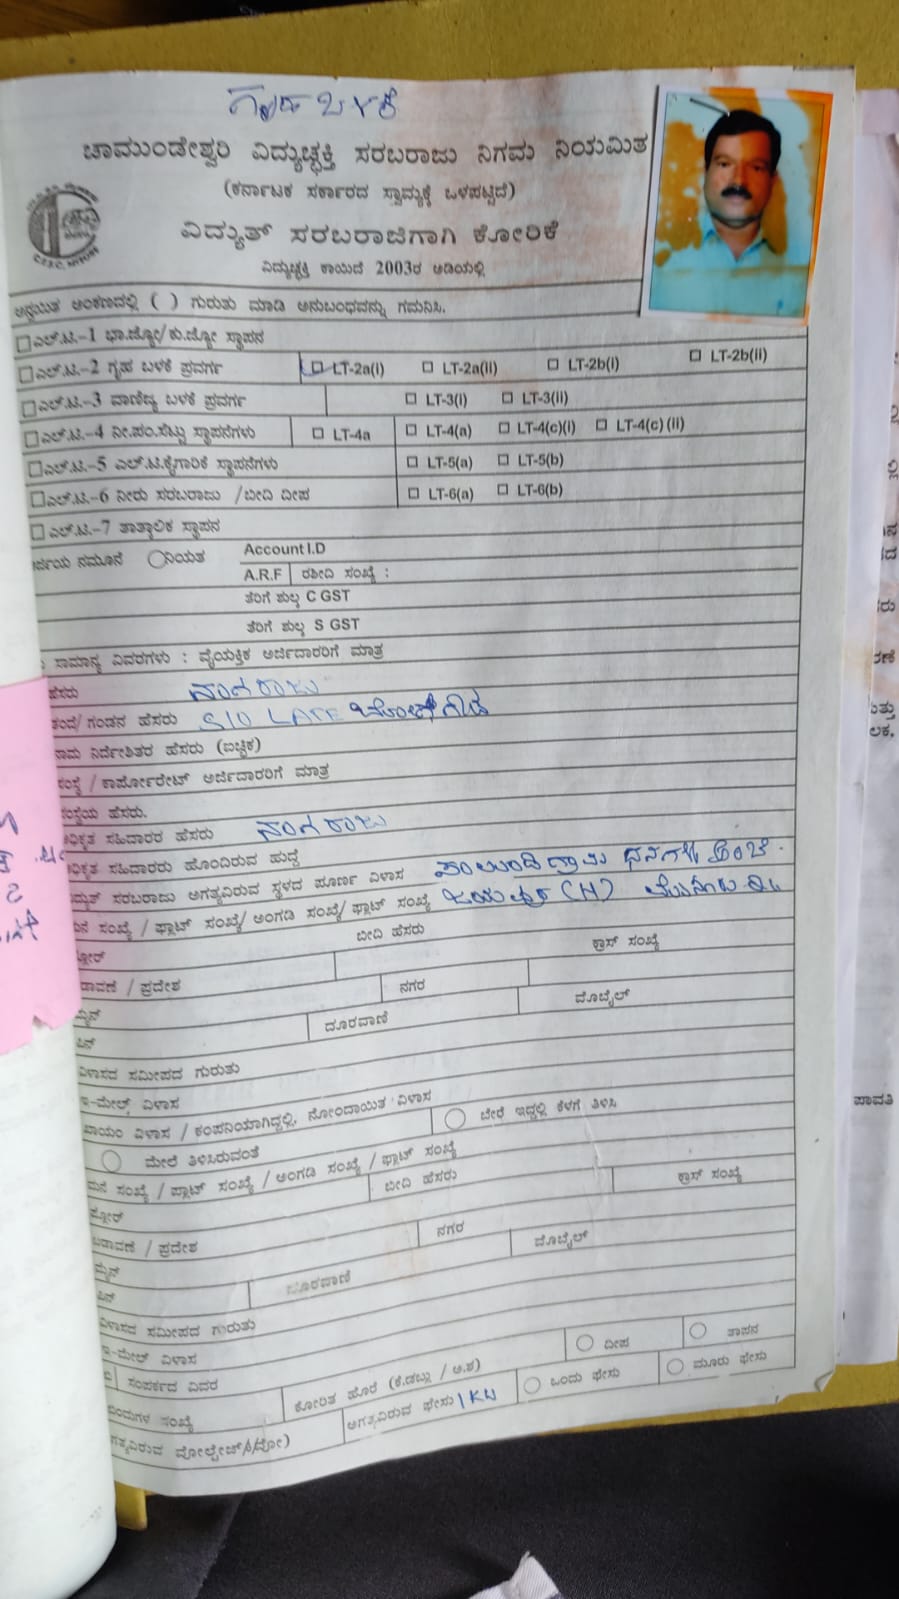 ಗೃಹ ಬಳಕೆ
ಚಾಮುಂಡೇಶ್ವರಿ ವಿದ್ಯುಚ್ಛಕ್ತಿ ಸರಬರಾಜು ನಿಗಮ ನಿಯಮಿತ
(ಕರ್ನಾಟಕ ಸರ್ಕಾರದ ಸ್ವಾಮ್ಯಕ್ಕೆ ಒಳಪಟ್ಟಿದೆ)
ವಿದ್ಯುತ್ ಸರಬರಾಜಿಗಾಗಿ ಕೋರಿಕೆ
ವಿದ್ಯುಚ್ಛಕ್ತಿ ಕಾಯಿದೆ 2003ರ ಅಡಿಯಲ್ಲಿ
C.E.S.C. MYSORE
ಅನ್ವಯಿತ ಅಂಕಣದಲ್ಲಿ ( ) ಗುರುತು ಮಾಡಿ ಅನುಬಂಧವನ್ನು ಗಮನಿಸಿ.
ಎಲ್.ಟಿ.-1 ಭಾ.ಜ್ಯೋ/ಕು.ಜ್ಯೋ ಸ್ಥಾಪನ
ಎಲ್.ಟಿ.-2 ಗೃಹ ಬಳಕೆ ಪ್ರವರ್ಗ LT-2a(i) LT-2a(ii) LT-2b(i) LT-2b(ii)
ಎಲ್.ಟಿ.-3 ವಾಣಿಜ್ಯ ಬಳಕೆ ಪ್ರವರ್ಗ LT-3(i) LT-3(ii)
ಎಲ್.ಟಿ.-4 ನೀ.ಪಂ.ಸೆಟ್ಟು ಸ್ಥಾಪನೆಗಳು LT-4a LT-4(a) LT-4(c)(i) LT-4(c) (ii)
ಎಲ್.ಟಿ.-5 ಎಲ್.ಟಿ.ಕೈಗಾರಿಕೆ ಸ್ಥಾಪನೆಗಳು LT-5(a) LT-5(b)
ಎಲ್.ಟಿ.-6 ನೀರು ಸರಬರಾಜು /ಬೀದಿ ದೀಪ LT-6(a) LT-6(b)
ಎಲ್.ಟಿ.-7 ತಾತ್ಕಾಲಿಕ ಸ್ಥಾಪನ
ರ್ಜಿಯ ನಮೂನೆ ನಿಯತ Account I.D
A.R.F ರಶೀದಿ ಸಂಖ್ಯೆ :
ತೆರಿಗೆ ಶುಲ್ಕ C GST
ತೆರಿಗೆ ಶುಲ್ಕ S GST
ಸಾಮಾನ್ಯ ವಿವರಗಳು : ವೈಯಕ್ತಿಕ ಅರ್ಜಿದಾರರಿಗೆ ಮಾತ್ರ
ಹೆಸರು ನಾಗರಾಜು
ತಂದೆ/ಗಂಡನ ಹೆಸರು S/O LATE
ನಾಮ ನಿರ್ದೇಶಿತರ ಹೆಸರು (ಐಚ್ಛಿಕ)
ಸಂಸ್ಥೆ / ಕಾರ್ಪೋರೇಟ್ ಅರ್ಜಿದಾರರಿಗೆ ಮಾತ್ರ
ಸಂಸ್ಥೆಯ ಹೆಸರು.
ಧಿಕೃತ ಸಹಿದಾರರ ಹೆಸರು ನಾಗರಾಜು
ಧಿಕೃತ ಸಹಿದಾರರು ಹೊಂದಿರುವ ಹುದ್ದೆ
ದ್ಯುತ್ ಸರಬರಾಜು ಅಗತ್ಯವಿರುವ ಸ್ಥಳದ ಪೂರ್ಣ ವಿಳಾಸ
ಮನೆ ಸಂಖ್ಯೆ / ಫ್ಲಾಟ್ ಸಂಖ್ಯೆ/ ಅಂಗಡಿ ಸಂಖ್ಯೆ/ ಪ್ಲಾಟ್ ಸಂಖ್ಯೆ ಜಯಪುರ (H) ಮೈಸೂರು
ಫ್ಲೋರ್ ಬೀದಿ ಹೆಸರು ಕ್ರಾಸ್ ಸಂಖ್ಯೆ
ಡಾವಣೆ / ಪ್ರದೇಶ ನಗರ
ಮೈನ್ ದೂರವಾಣಿ ಮೊಬೈಲ್
ಪಿನ್
ವಿಳಾಸದ ಸಮೀಪದ ಗುರುತು
ಇ-ಮೇಲ್ ವಿಳಾಸ
ಖಾಯಂ ವಿಳಾಸ / ಕಂಪನಿಯಾಗಿದ್ದಲ್ಲಿ, ನೋಂದಾಯಿತ ವಿಳಾಸ
ಮೇಲೆ ತಿಳಿಸಿರುವಂತೆ ಬೇರೆ ಇದ್ದಲ್ಲಿ ಕೆಳಗೆ ತಿಳಿಸಿ
ಮನೆ ಸಂಖ್ಯೆ / ಪ್ಲಾಟ್ ಸಂಖ್ಯೆ / ಅಂಗಡಿ ಸಂಖ್ಯೆ / ಫ್ಲಾಟ್ ಸಂಖ್ಯೆ
ಫ್ಲೋರ್ ಬೀದಿ ಹೆಸರು ಕ್ರಾಸ್ ಸಂಖ್ಯೆ
ಬಡಾವಣೆ / ಪ್ರದೇಶ ನಗರ
ಮೈನ್ ದೂರವಾಣಿ ಮೊಬೈಲ್
ಪಿನ್
ವಿಳಾಸದ ಸಮೀಪದ ಗುರುತು
ಇ-ಮೇಲ್ ವಿಳಾಸ
ಸಂಪರ್ಕದ ವಿವರ ದೀಪ ತಾಪನ
ಬಿಂದುಗಳ ಸಂಖ್ಯೆ ಕೋರಿತ ಹೊರೆ (ಕಿ.ಡಬ್ಲ್ಯು / ಅ.ಶ) ಒಂದು ಫೇಸು ಮೂರು ಫೇಸು
ಗತ್ಯವಿರುವ ವೋಲ್ಟೇಜ್ ಅಗತ್ಯವಿರುವ ಫೇಸು 1KW
ಪಾವತಿ